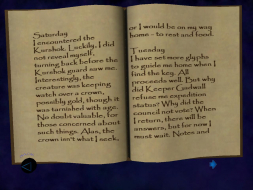 Saturday
I encountered the
Karshok. Luckily, I did
not reveal myself,
turning back before the
Karshok guard saw me.
Interestingly, the
creature was keeping
watch over a crown,
possibly gold, though it
was tarnished with age.
No doubt valuable, for
those concerned about
such things. Alas, the
crown isn't what I seek,
or I would be on my way
home - to rest and food.
Tuesday
I have set more glyphs
to guide me when I
find the key. All
proceeds well. But why
did Keeper Gadwall
refuse me expedition
status? Why did the
council not vote? When
I return, there will be
answers, but for now I
must wait. Notes and